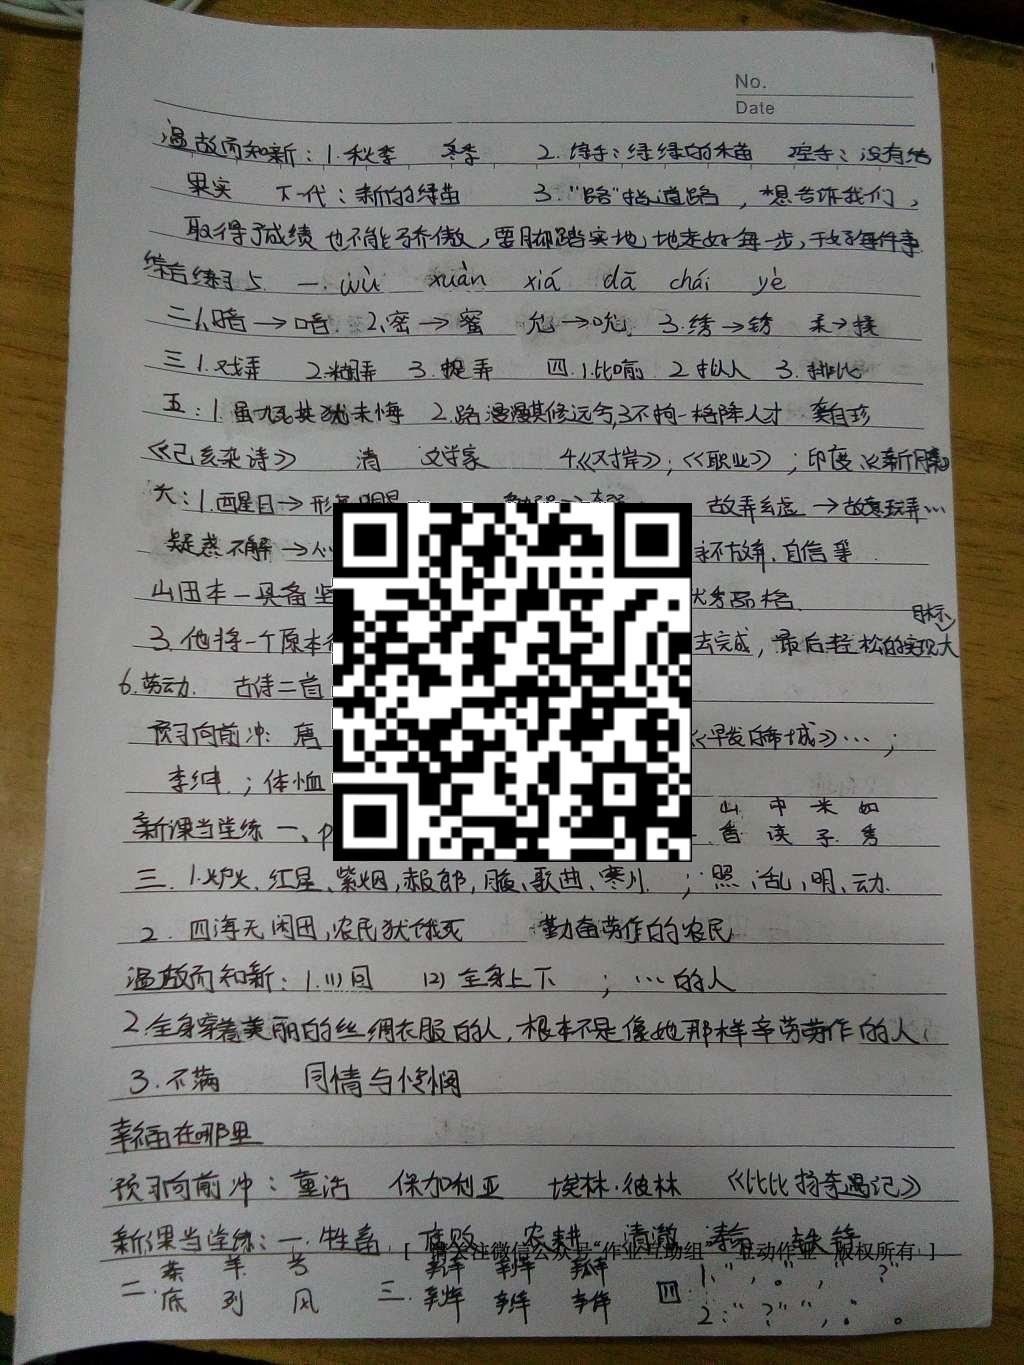 No.
Date
温故而知新：1.秋季 冬季 2.绿手：绿绿的禾苗 空手：没有结
果实 下一代：新的绿苗 3."路"指道路，想告诉我们，
取得了成绩也不能骄傲，要脚踏实地地走好每一步，干好每件事
综合练习5. 一.wù xuàn xiá dā chái yè
二1.暗→喑 2.密→蜜 允→吮 3.绣→锈 柔→揉
三1.戏弄 2.糊弄 3.捉弄 四.1.比喻 2拟人 3.排比
五：1.虽九死其犹未悔 2.路漫漫其修远兮 3不拘一格降人才 龚自珍
《己亥杂诗》 清 文学家 4《对岸》；《职业》；印度《新月集》
六：1.醒目→形 故弄玄虚→故意玩弄…
疑惑不解→心 永不放弃、自信等
山田本一具备坚 优秀品格.
3.他将一个原本 去完成，最后轻松的实现大目标
6.劳动. 古诗二首
预习向前冲：唐 《早发白帝城》…；
李绅.；体恤
山 中 米 如
新课当堂练 一、p 香 读 子 秀
三.1.炉火、红星、紫烟，赧郎，月夜、歌曲、寒川.；照、乱，明、动.
2.四海无闲田，农民犹饿死 勤奋劳作的农民
温故而知新：1.(1)回 (2)全身上下；…的人
2.全身穿着美丽的丝绸衣服的人，根本不是像她那样辛劳劳作的人.
3.不满 同情与怜悯
幸福在哪里
预习向前冲：童话 保加利亚 埃林·彼林 《比比扬奇遇记》
新课当堂练：一.牲畜 腐败 农耕 清澈
[ 请关注微信公众号"作业互助组" 互动作业 版权所有 ]
二.
底 列 风 三. 四 1."，。"，"？"
2："？""，。。